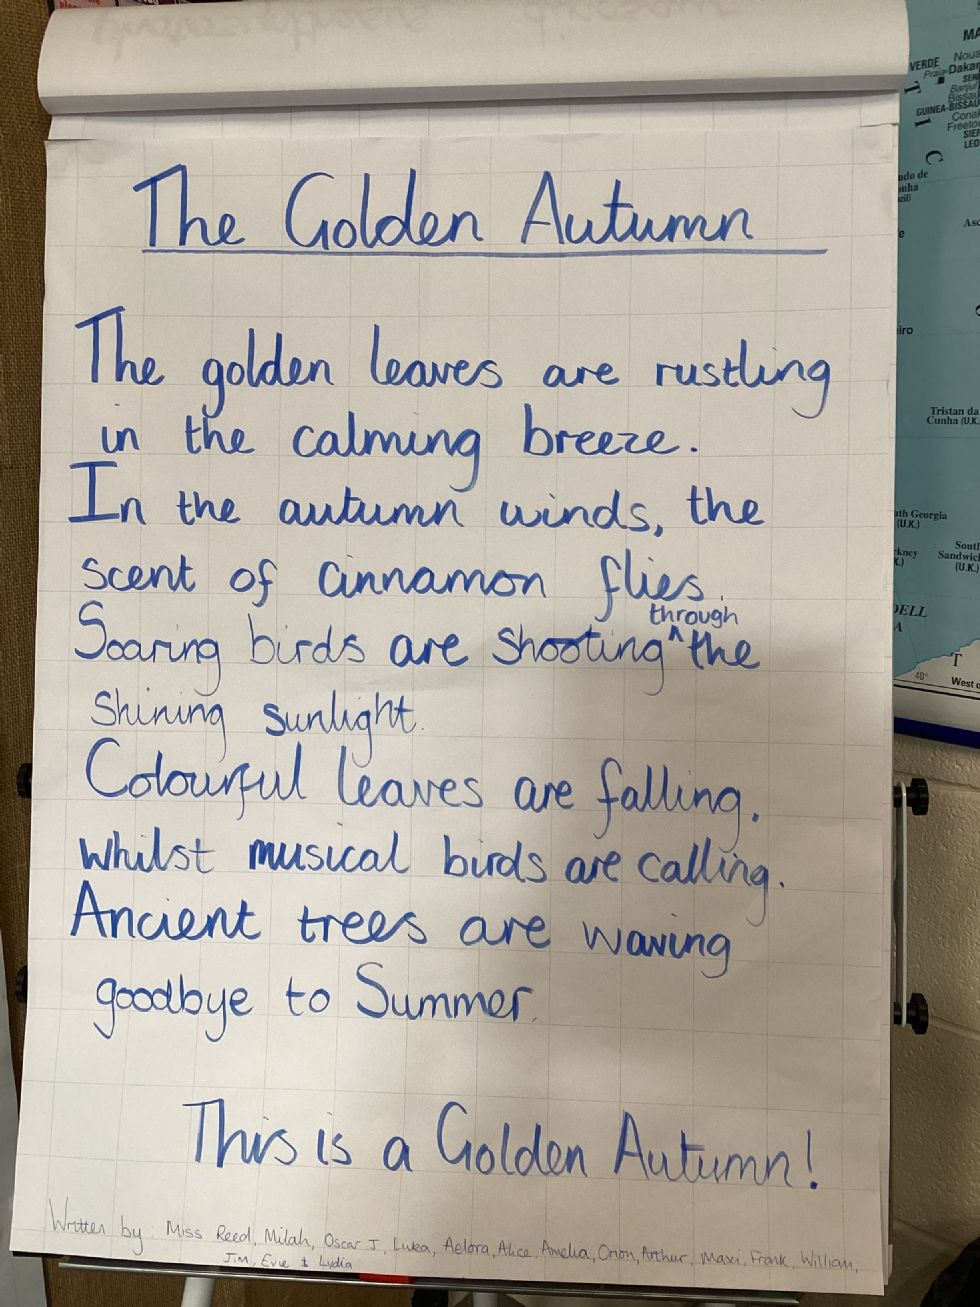 The Golden Autumn
The golden leaves are rustling
in the calming breeze.
In the autumn winds, the
scent of cinnamon flies.
through
Soaring birds are shooting ^ the
shining sunlight.
Colourful leaves are falling,
whilst musical birds are calling.
Ancient trees are waving
goodbye to Summer.
This is a Golden Autumn!
Written by: Miss Reed, Milah, Oscar J, Luka, Aelora, Alice, Amelia, Orion, Arthur, Maxi, Frank, William,
Jim, Evie & Lydia
VERDE
Praia
Dakar
GUINEA-BISSAU
Tristan da
Cunha (U.K.
Georgia
(U.K.)
Sandwich
(U.K.)
40°
West o